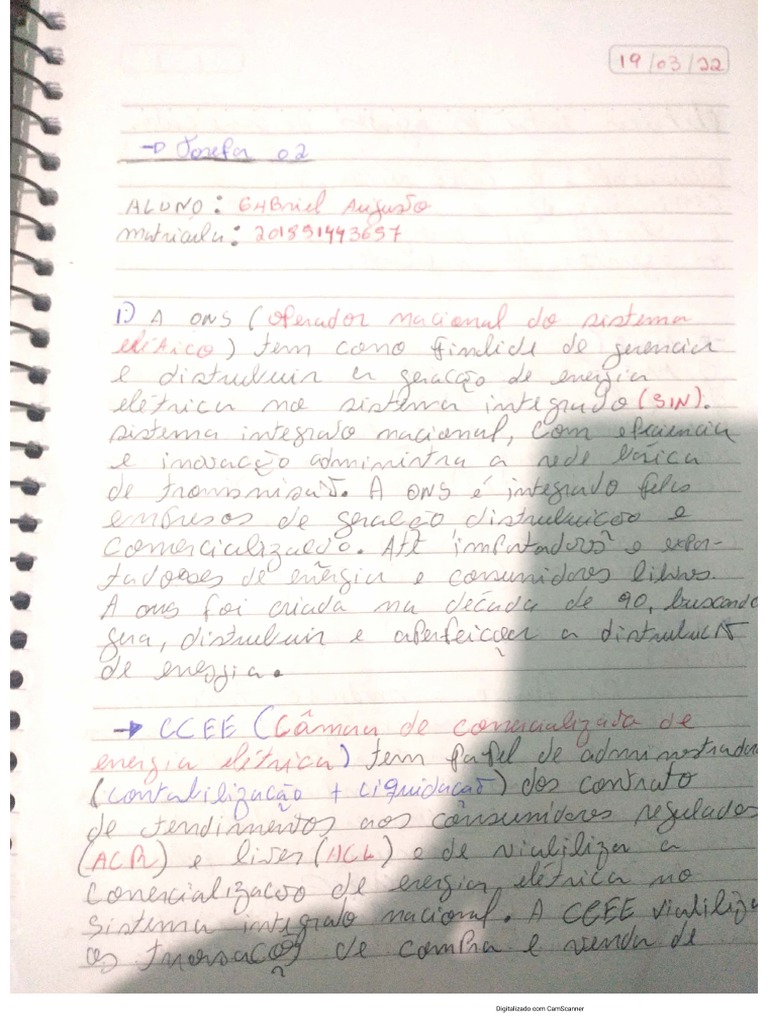 19/03/22
→ Tarefa 02
ALUNO: GABriel Augusto
matrícula: 201891443697
1.) A ONS (operador nacional do sistema
elétrico) tem como finalide de gerenciar
e distribuir a geração de energia
elétrica no sistema integrado (SIN).
sistema integrato nacional, com eficiencia
e inovação administra a rede básica
de transmissão. A ONS é integrado pelas
empresas de geração, distribuicão e
comercialização. Até importadores e expor-
tadores de energia e consumidores livres.
A ons foi criada na década de 90, buscando
gera, distribuir e aperfeiçoar a distribuição
de energia.
→ CCEE (Câmara de comercializada de
energia elétrica) tem papel de administrador
(contabilização + Liquidação) dos contrato
de tendimentos aos consumidores regulados
(ACR) e livres (ACL) e de viabiliza a
comercialização de energia elétrica no
sistema integrato nacional. A CCEE viabiliza
as transações de compra e venda de
Digitalizado com CamScanner